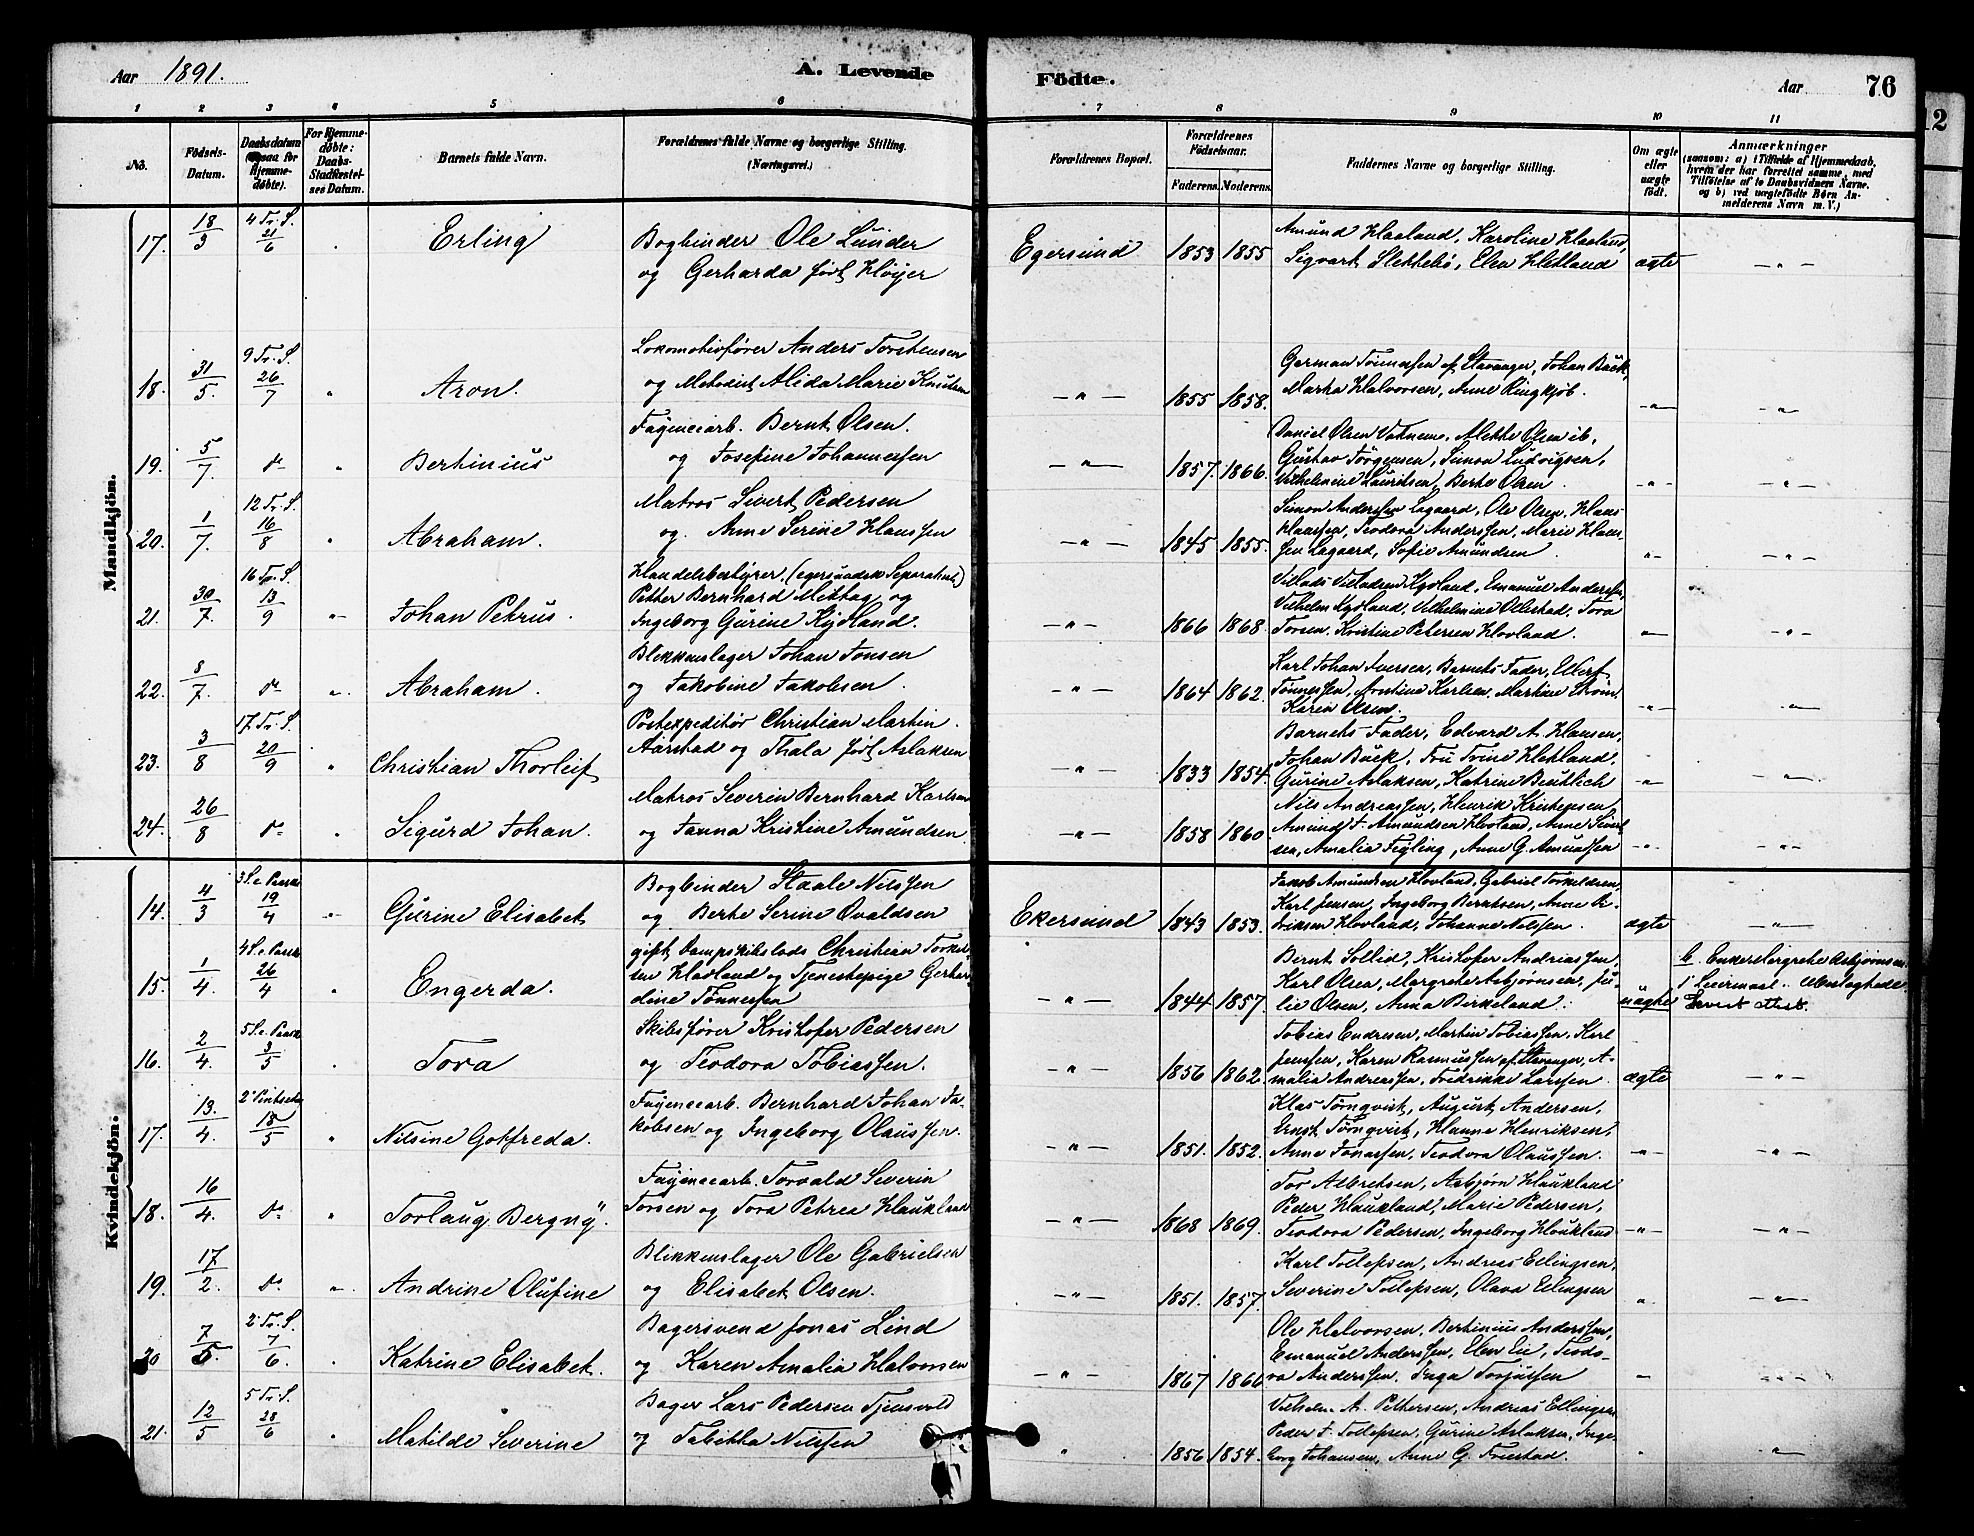 Aar 1891.
A. Levende
Födte.
Aar
76
12
1 2 3 4 5 6 7 8 9 10 11
No.
Födsels-Datum.
Daabsdatum (ogsaa for Hjemme-døbte).
For Hjemme-døbte: Daabs-Stadfæstel-ses Datum.
Barnets fulde Navn.
Forældrenes fulde Navne og borgerlige Stilling. (Næringsvei.)
Forældrenes Bopæl.
Forældrenes Födselsaar.
Faderens. Moderens.
Faddernes Navne og borgerlige Stilling.
Om ægte eller uægte født.
Anmærkninger
(saasom: a) i Tilfælde af Hjemmedaab,
hvem der har forrettet samme, med
Tilföielse af to Daabsvidners Navne.
og b) ved uægtefödte Börn An-
melderens Navn m. V.)
Mandkjön.
17. 18/3 4 Tr. S. 21/6 " Erling
Bogbinder Ole Lunder
og Gerharda født Høyer
Egersund 1853 1855
Amund Haaland, Karoline Haaland
Sigvart Slettebø, Elen Hetland
ægte — " —
18. 31/5. 9 Tr. S. 26/7 " Aron.
Lokomotivfører Anders Torstensen
og Metodist Alida Marie Knutsen
— " — 1855 1858.
German Tönnesen af Stavanger, Johan Buck,
Marta Halvorsen, Anne Ringkjøb.
— " — — " —
19. 5/7. do " Bertinius
Fayencearb. Bernt Olsen.
og Josefine Johannessen
— " — 1857. 1866.
Daniel Olsen Vatnene, Alette Olsen ib,
Gustav Jörgensen, Simon Ludvigsen,
Vilhelmine Lauritsen, Berte Olsen
— " — — " —
20. 1/7. 12 Tr. S. 16/8 " Abraham.
Matros Sivert Pedersen
og Anne Serine Hanssen
— " — 1845 1855.
Simon Anderssen Lagaard, Ole Olsen, Hans
Hanssen, Teodora Anderssen, Marie Hans-
sen Lagaard, Sofie Amundsen
" — — " —
21. 30/7. 16 Tr. S. 13/9 " Johan Petrus.
Handelsbestyrer, (egersundsk Separatist)
Petter Bernhard Mittag og
Ingeborg Gurine Kydland.
— " — 1866 1868
Villads Villadsen Kydland, Emanuel Anderssen,
Vilhelm Kydland, Vilhelmine Ollestad, Tora
Torsen, Kristine Petersen Hovland.
— " — — " —
22. 8/7. do " Abraham.
Blikkenslager Johan Jonsen
og Jakobine Jakobsen.
— " — 1864 1862.
Karl Johan Iversen, Barnets Fader, Elert
Tönnessen, Karlsen, Martine Ström
Karen Olsen.
— " — — " —
23. 3/8 17. Tr. S. 20/9 " Christian Thorleif
Postexpeditör Christian Martin
Aarstad og Thala født Aslaksen
— " — 1833 1854.
Barnets Fader, Edvard A. Hansen,
Johan Buck, Fru Trine Hetland,
Gurine Aslaksen, Katrine Beutlich
— " — — " —
24. 26/8 do " Sigurd Johan.
Matros Severin Bernhard Karlsen
og Janna Kristine Amundsen
— " — 1858 1860
Nils Andreassen, Henrik Kristensen,
Amund J. Amundsen Hovland, Anne Sivert-
sen, Amalia Feyling, Anne G. Amundsen
— " — — " —
Kvindekjön.
14. 4/3 3 S. e. Paaske 19/4 " Gurine Elisabet
Bogbinder Staale Nilssen
og Berte Serine Ovaldsen
Ekersund 1843 1853.
Jakob Amundsen Hovland, Gabriel Torkeldsen,
Karl Jensen, Ingeborg Berntsen, Anne E-
riksen Hovland, Johanne Nilssen.
ægte — " —
15. 1/4. 4 S. e. Paaske 26/4 Engerda.
gift Dampskibslods Christian Torkel-
sen Hadland og Tjenestepige Gerhar-
dine Tönnessen
— " — 1844 1857.
Bernt Sollid, Kristofer Andreassen,
Karl Olsen, Margrete Asbjörnsen, Ju-
lie Olsen, Anna Birkeland.
uægte
b. Enke Margrethe Asbjørnsen.
1' Leiermaal.
16. 2/4. 5 S. e. Paaske 3/5 " Tora
Skibsfører Kristofer Pedersen
og Teodora Tobiassen.
— " — 1856 1862.
Tobias Endresen, Martin Tobiassen, Karl
Jenssen, Karen Rasmussen af Stavanger, A-
malia Andreassen, Fredrikke Larssen
ægte — " —
17. 13./4. 2' Pintsedag 18/5 " Nilsine Gotfreda.
Fayencearb. Bernhard Johan Ja-
kobsen og Ingeborg Olaussen.
— " — 1851. 1852.
Klas Törnqvist, August Andersen,
Ernst Törnqvist, Hanne Henriksen,
Anne Jonassen, Teodora Olaussen.
— " — — " —
18. 16/4. do " Torlaug Bergny.
Fayencearb. Torvald Severin
Torsen og Tora Petrea Haukland
— " — 1868 1869.
Tor Albretsen, Asbjørn Haukland
Peder Haukland, Marie Pedersen,
Teodora Pedersen, Ingeborg Haukland
— " — — " —
19. 17/2. do " Andrine Olufine
Blikkenslager Ole Gabrielsen
og Elisabet Olsen.
— " — 1851. 1857.
Karl Tollefsen, Andreas Edingsen,
Severine Tollefsen, Olava Edingsen
" — — " —
20 7/5. 2' Tr. S. 7/6. " Katrine Elisabet.
Bagersvend Jonas Lind
og Karen Amalia Halvorsen
— " — 1867 1866
Ole Halvorsen, Bertinius Anderssen,
Emanuel Anderssen, Elen Eie, Teodo-
ra Anderssen, Inga Torjussen
— — " —
21. 12/5 5 Tr. S. 28/6 " Matilde Severine
Bager Lars Pedersen Tjensvold
og Tabitha Nilssen
" 1856 1854.
Vilhelm A. Pettersen, Andreas Ellingsen
Peder J. Tollefsen, Gurine Aslaksen, Inge-
borg Johansen, Anne G. Frestad.
" — " —